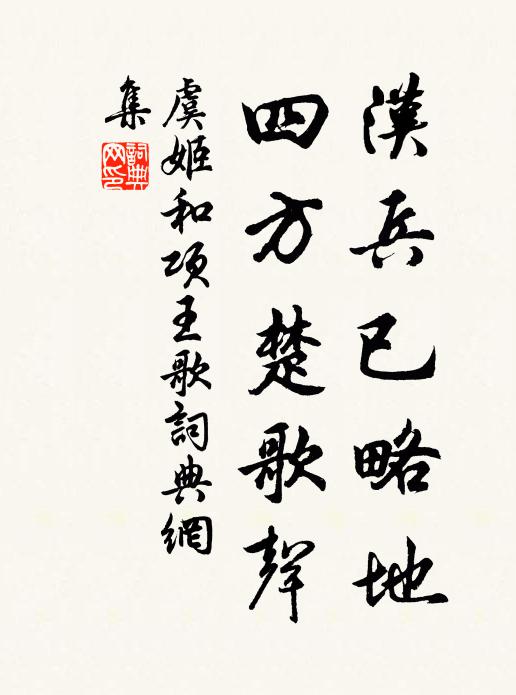 漢兵已略地
四方楚歌聲
虞姬和项王歌詞典網
集
詞典
网印